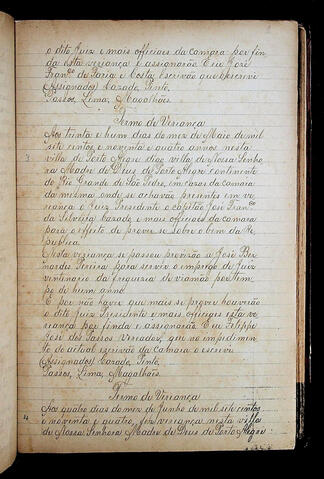 o dito Juiz e mais officiaes da camara por fin
da esta veriança e assignarão Eu José
Fran.co de Faria e Costa, escrivão que o escrevi
(Assignados) Cazado, Pinto,
Passos, Lima, Magalhães.
Termo de Veriança
Aos trinta e hum dias do mez de Maio de mil
sete centos e noventa e quatro annos nesta
villa de Porto Alegre digo villa de Nossa Senho
ra Madre de Deus de Porto Alegre continente
do Rio Grande de São Pedro, em cazas da camara
da mesma onde se achavão presentes em ve
riança o Juiz Presidente o capitão José Fran.co
da Silveira Cazado e mais officiaes da camara
para o effeito de prover-se sobre o bem da Re
publica.
Nesta veriança se passou provizão a José Ber
nardes Pereira para servir o emprego de Juiz
ventenario da freguezia de Viamão por tem
po de hum anno.
E por não haver que mais se prover houverão
o dito Juiz Presidente e mais officiaes esta ve
riança por finda e assignarão. Eu Felippe
José dos Passos Vereador, que no impedimen
to do actual escrivão da Camara o escrevi
(Assignados) Cazado, Pinto,
Passos, Lima, Magalhães.
Termo de Veriança
4 Aos quatro dias do mez de Junho de mil sete centos
e noventa e quatro, fez veriança nesta villa
de Nossa Senhora Madre de Deus de Porto Alegre